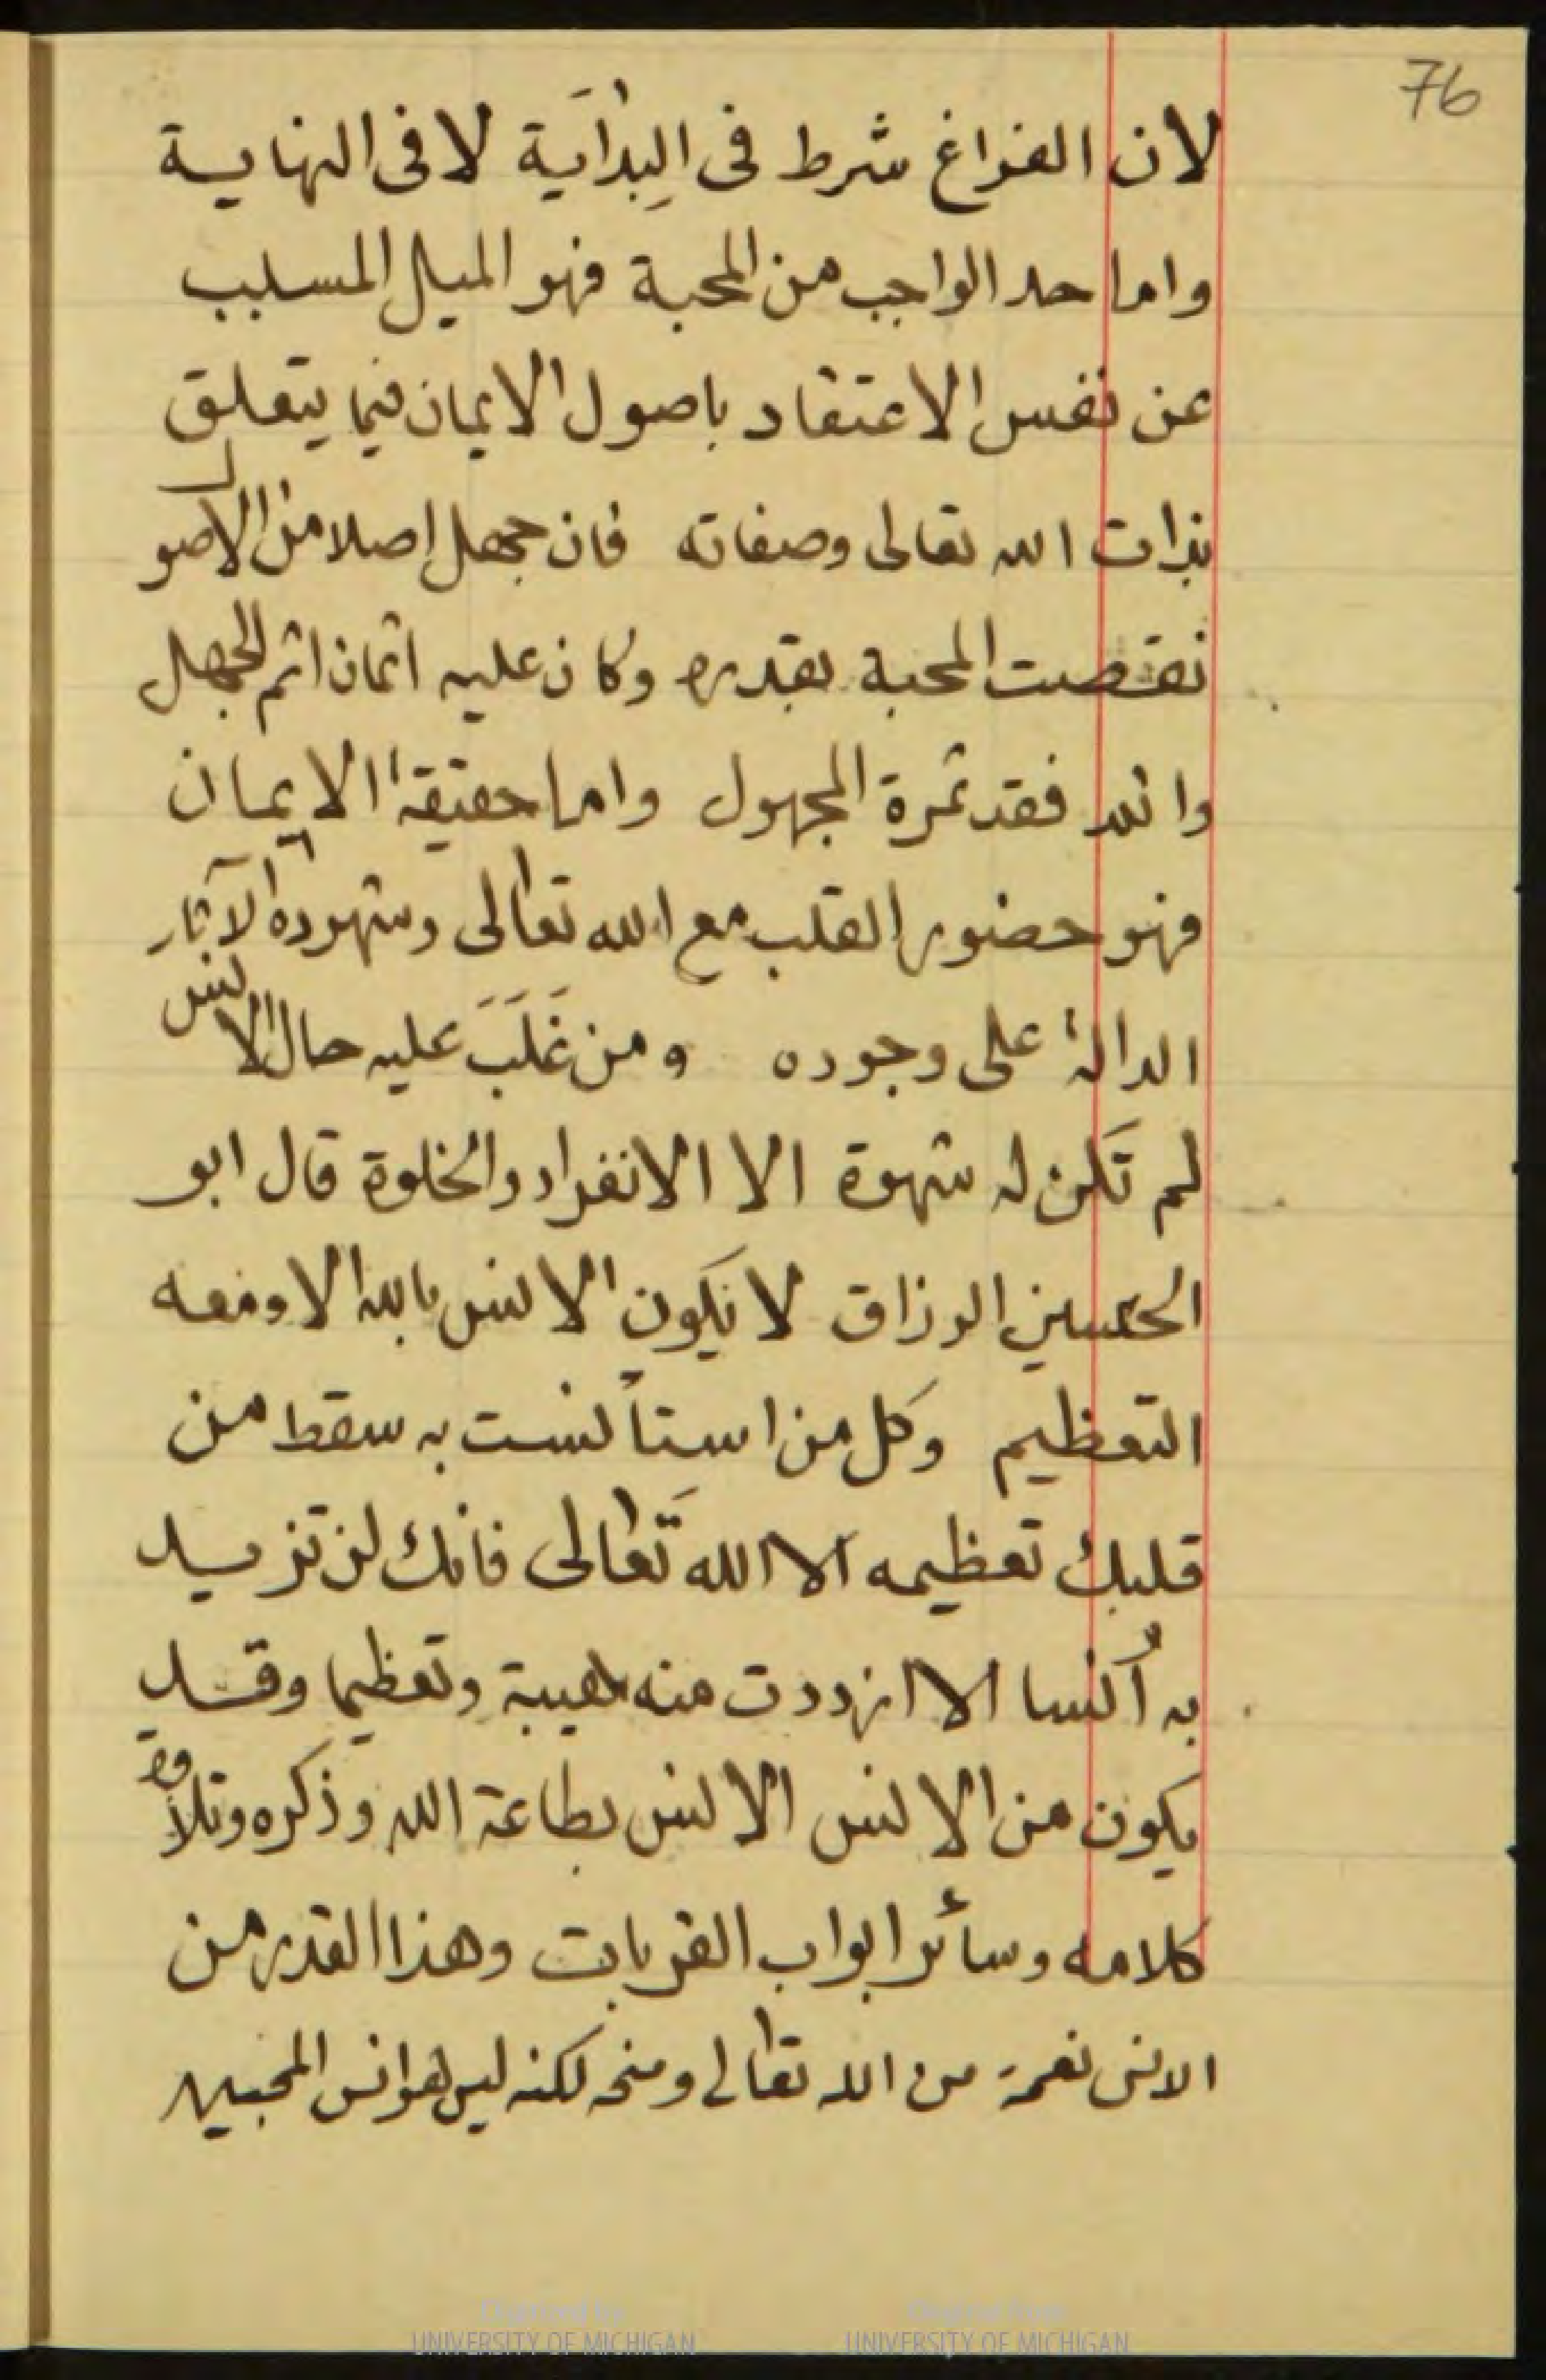 76
لان الفراغ شرط فى البِدٰايَة لا فى النهاية
واما حد الواجب من المحبة فهو الميل المسبب
عن نفس الاعتقاد باصول الايمان فيما يتعلق
بذات الله تعالى وصفاته فان جهل اصلا من الاصول
نقصت المحبة بقدره وكان عليه اثمان اثم الجهل
واثم فقد ثمرة المجهول واما حقيقة الايمان
فهو حضور القلب مع الله تعالى وشهوده الآثار
الدالة على وجوده ومن غَلَبَ عليه حال الانس
لم تَكن له شهوة الا الانفراد والخلوة قال ابو
الحسين الوراق لا يكون الانس بالله الا ومعه
التعظيم وكل من استأنست به سقط من
قلبك تعظيمه الا الله تَعٰالى فانك لن تزيد
به اُنسا الا ازددت منه هيبة وتعظيما وقد
يكون من الانس الانس بطاعة الله وذكره وتلاوة
كلامه وسائر ابواب القربات وهذا القدر من
الانس نعمة من الله تعالى ومنحه لكنه ليس هو انس المحبين
Digitized by
UNIVERSITY OF MICHIGAN
Original from
UNIVERSITY OF MICHIGAN